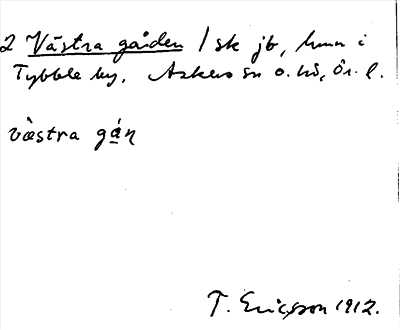 2 Västra gården 1 sk jb, hmn i
Tybble by. Askers sn o. hd, Ör. l.
væ̀stra gá̠ṇ
T. Ericsson 1912.